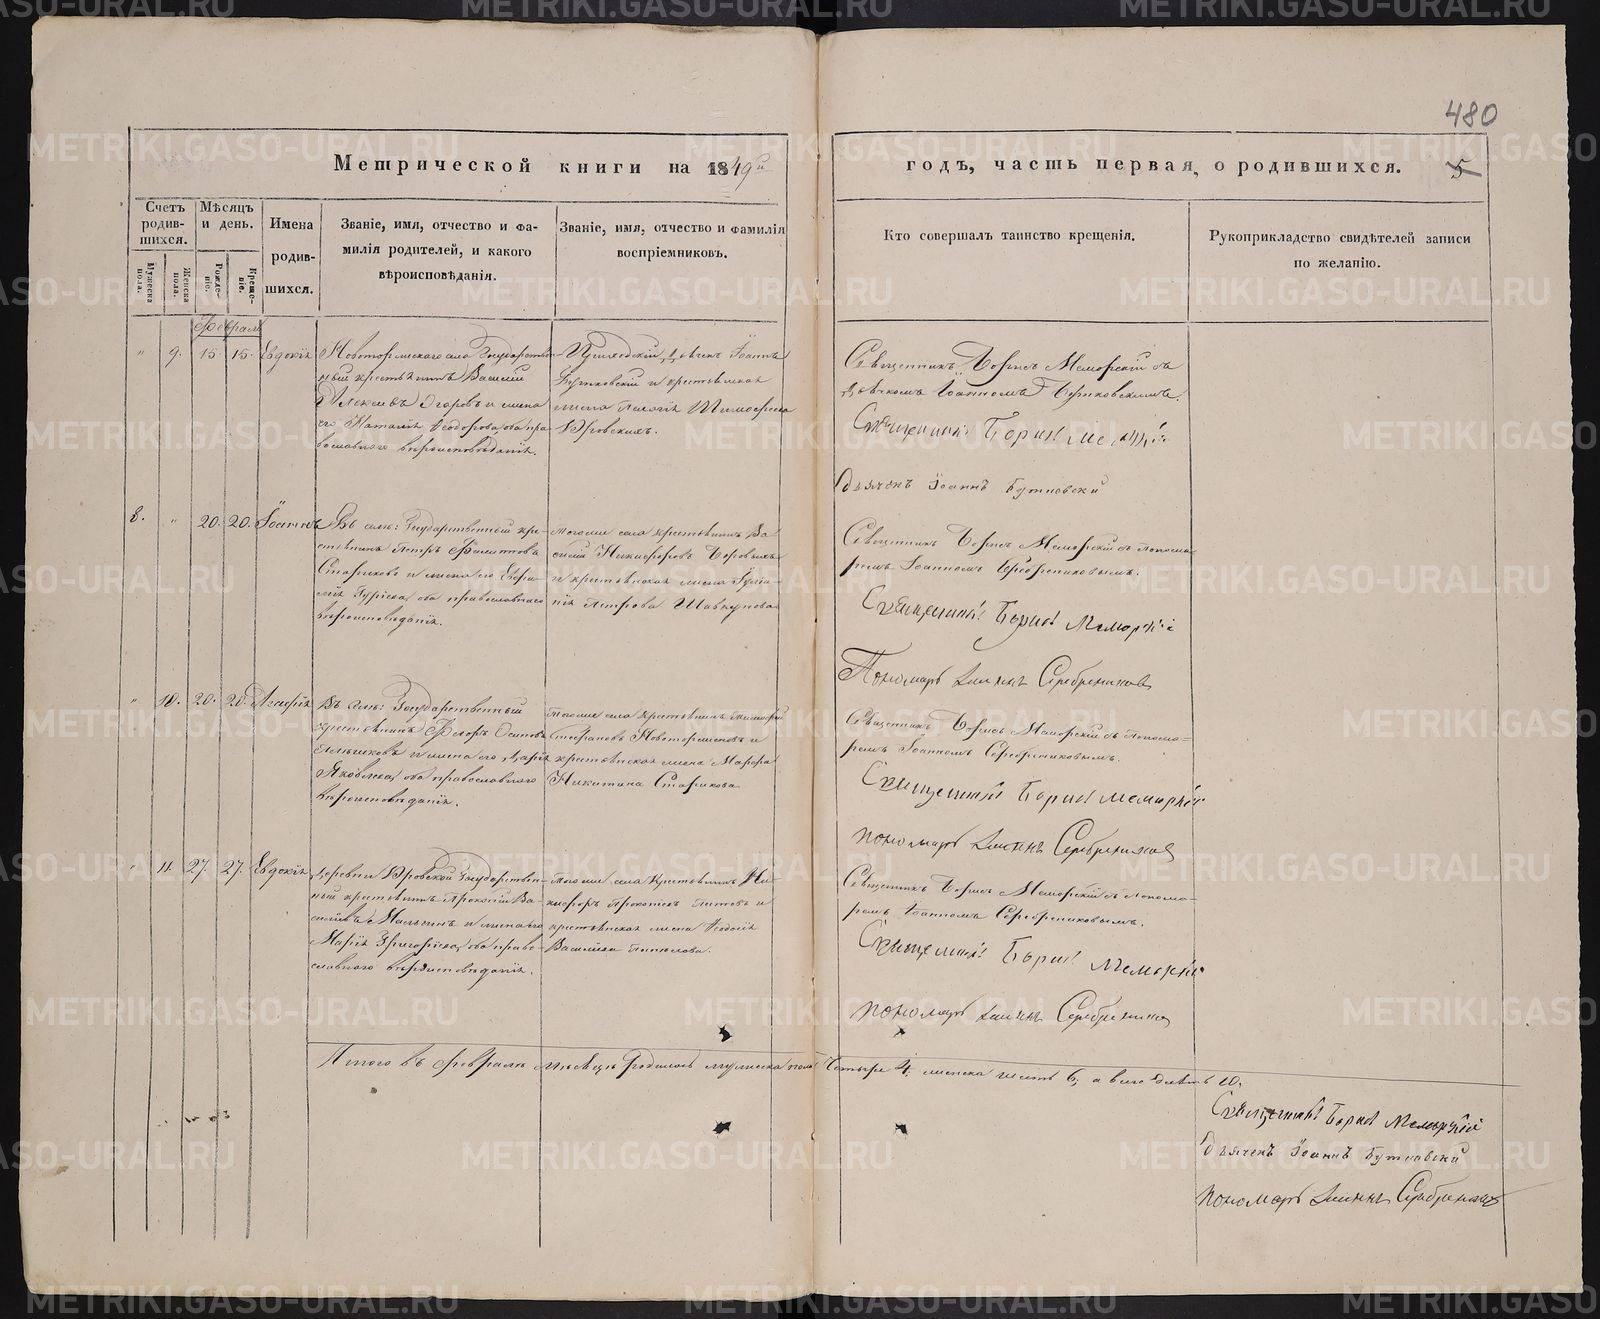 480
Метрической книги на 1849й
годъ, часть первая, о родившихся. 5
Счетъ родив- шихся.
Мѣсяцъ и день.
Имена родив- шихся.
Званіе, имя, отчество и фа-
милія родителей, и какого
вѣроисповѣданія.
Званіе, имя, отчество и фамилія
воспріемниковъ.
Кто совершалъ таинство крещенія.
Рукоприкладство свидѣтелей записи
по желанію.
Мужеска пола.
Женска пола.
Рожде- ніе.
Креще- ніе.
Февраль
" 9. 15. 15. Евдокія
села Государствен-
ный крестьянинъ Василій
Егоровъ и жена
его Наталія Ѳеодорова, оба пра-
вославнаго вѣроисповѣданія.
дьячекъ Іоаннъ
Бутковскій и крестьянская
жена Пелагія Тимофеева
Священникъ Борисъ Меморскій съ
дьячкомъ Іоанномъ Бутковскимъ.
Священникъ Борисъ Меморскій
дьячекъ Іоаннъ Бутковскій
8. " 20. 20. Іоаннъ
Въ селѣ: Государственный кре-
стьянинъ Петръ Филиповъ
Стариковъ и жена его
оба православнаго
вѣроисповѣданія.
тогоже села крестьянинъ Ва-
силій Никифоровъ Боровыхъ
и крестьянская жена
Петрова Шавкунова
Священникъ Борисъ Меморскій съ понома-
ремъ Іоанномъ Серебрениковымъ.
Священникъ Борисъ Меморскій
Пономарь Іоаннъ Серебрениковъ
" 10. 20. 20. Агафія
Въ селѣ: Государственный
крестьянинъ Федоръ Осиповъ
и жена его Дарія
Яковлева, оба православнаго
вѣроисповѣданія.
тогоже села крестьянинъ
Стефановъ и
крестьянская жена Марфа
Никитина Старикова
Священникъ Борисъ Меморскій съ понома-
ремъ Іоанномъ Серебрениковымъ.
Священникъ Борисъ Меморскій
пономарь Іоаннъ Серебрениковъ
" 11. 27. 27. Евдокія
Деревни Государствен-
ный крестьянинъ Прокопій Ва-
сильевъ и жена его
Марія Григорьева, оба право-
славнаго вѣроисповѣданія.
тогоже села крестьянинъ Ни-
кифоръ Прокопьевъ и
крестьянская жена Ѳеодосія
Васильева
Священникъ Борисъ Меморскій съ понома-
ремъ Іоанномъ Серебрениковымъ.
Священникъ Борисъ Меморскій
пономарь Іоаннъ Серебрениковъ
Итого въ февралѣ мѣсяцѣ родилось мужеска пола четыре 4, женска шесть 6, а всего десять 10.
Священникъ Борисъ Меморскій
дьячекъ Іоаннъ Бутковскій
пономарь Іоаннъ Серебрениковъ
METRIKI.GASO-URAL.RU